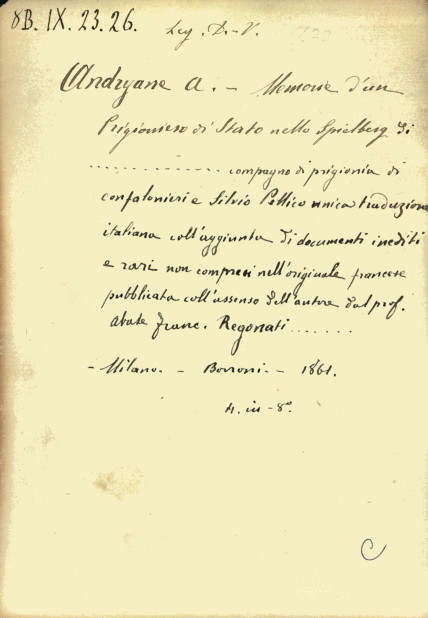 8B. IX. 23. 26. Leg. D.-V.
Andryane A. - Memorie d'un
Prigioniero di Stato nello Spielberg di
.............. compagno di prigionia di
Confalonieri e Silvio Pellico unica traduzione
italiana coll'aggiunta di documenti inediti
e rari non compresi nell'originale francese
pubblicata coll'assenso dell'autore dal prof.
Abate Franc. Regonati.......
- Milano. - Borroni. - 1861.
4. in-8°.
C